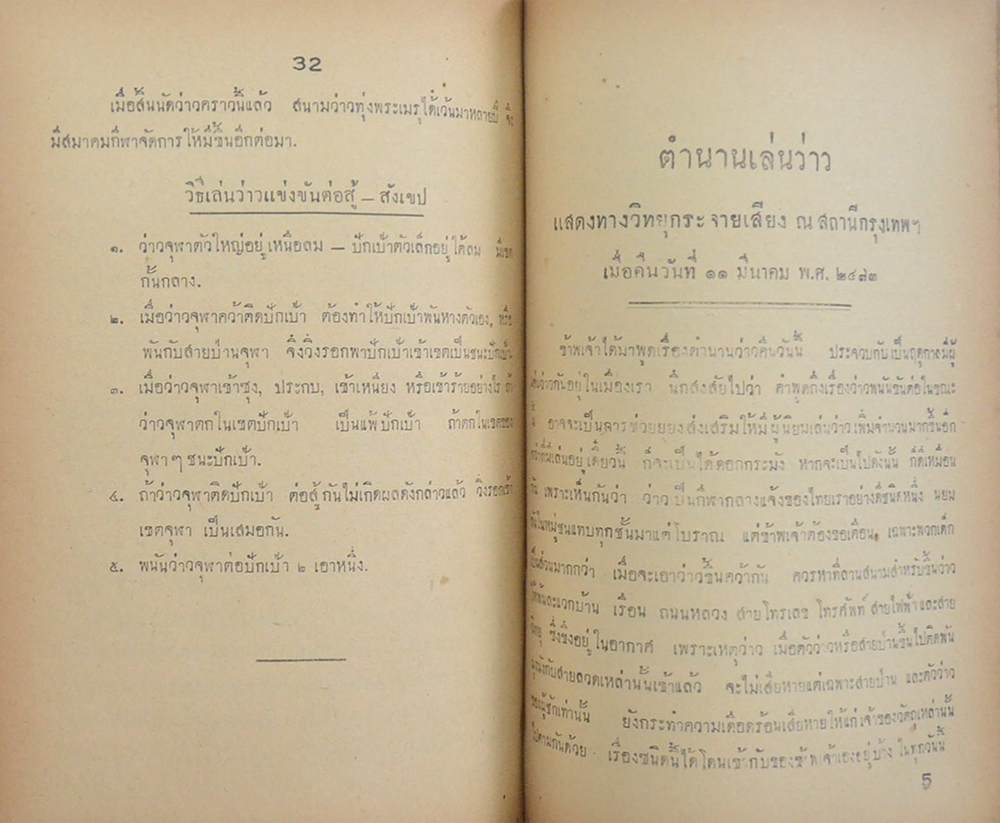 32
เมื่อสิ้นนัดว่าวคราวนี้แล้ว สนามว่าวทุ่งพระเมรุได้เว้นมาหลายปี จึง
มีสมาคมกีฬาจัดการให้มีขึ้นอีกต่อมา.
วิธีเล่นว่าวแข่งขันต่อสู้ – สังเขป
๑. ว่าวจุฬาตัวใหญ่อยู่เหนือลม – ปักเป้าตัวเล็กอยู่ใต้ลม มีเขต
กั้นกลาง.
๒. เมื่อว่าวจุฬาคว้าติดปักเป้า ต้องทำให้ปักเป้าพันหางตัวเอง, หรือ
พันกับสายป่านจุฬา จึงวิ่งรอกพาปักเป้าเข้าเขตเป็นชนะปักเป้า
๓. เมื่อว่าวจุฬาเข้าซุง, ประกบ, เข้าเหนียง หรือเข้าร้ายอย่างไร
ว่าวจุฬาตกในเขตปักเป้า เป็นแพ้ปักเป้า ถ้าตกในเขตของ
จุฬา ๆ ชนะปักเป้า.
๔. ถ้าว่าวจุฬาติดปักเป้า ต่อสู้กันไม่เกิดผลดังกล่าวแล้ว วิ่งรอกเข้า
เขตจุฬา เป็นเสมอกัน.
๕. พนันว่าวจุฬาต่อปักเป้า ๒ เอาหนึ่ง.
ตำนานเล่นว่าว
แสดงทางวิทยุกระจายเสียง ณ สถานีกรุงเทพฯ
เมื่อคืนวันที่ ๑๑ มีนาคม พ.ศ. ๒๔๗๓
ข้าพเจ้าได้มาพูดเรื่องตำนานว่าวคืนวันนี้ ประจวบกับเป็นฤดูกาลมีผู้
เล่นว่าวกันอยู่ในเมืองเรา นึกสงสัยไปว่า คำพูดถึงเรื่องว่าวพนันขันต่อในขณะ
นี้ อาจจะเป็นการช่วยยุยงส่งเสริมให้มีผู้นิยมเล่นว่าวเพิ่มจำนวนมากขึ้นอีก
กว่าที่เล่นอยู่เดี๋ยวนี้ ก็จะเป็นได้ดอกกระมัง หากจะเป็นไปดังนั้น ก็ดีเหมือน
กัน เพราะเห็นกันว่า ว่าวเป็นกีฬากลางแจ้งของไทยเราอย่างดีชนิดหนึ่ง นิยม
กันในหมู่ชนแทบทุกชั้นมาแต่โบราณ แต่ข้าพเจ้าต้องขอเตือน, เฉพาะพวกเด็ก
เป็นส่วนมากกว่า เมื่อจะเอาว่าวขึ้นคว้ากัน ควรหาที่ลานสนามสำหรับขึ้นว่าว
ให้พ้นละแวกบ้าน เรือน ถนนหลวง สายโทรเลข โทรศัพท์ สายไฟฟ้า และสาย
วิทยุ ซึ่งขึงอยู่ในอากาศ เพราะเหตุว่าว เมื่อตัวว่าวหรือสายป่านขึ้นไปติดพัน
ยุ่งขิงกับสายลวดเหล่านั้นเข้าแล้ว จะไม่เสียหายแต่เฉพาะสายป่าน และตัวว่าว
ของผู้ชักเท่านั้น ยังกระทำความเดือดร้อนเสียหายให้แก่เจ้าของวัตถุเหล่านั้น
ไปตามกันด้วย เรื่องชนิดนี้ได้โดนเข้ากับของข้าพเจ้าเองอยู่บ้าง ในทุกวันนี้
5